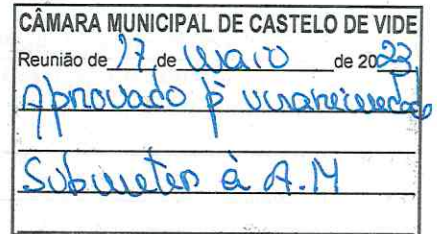 CÂMARA MUNICIPAL DE CASTELO DE VIDE
Reunião de 17 de Maio de 2023
Aprovado p unanimidade
Submeter à A.M